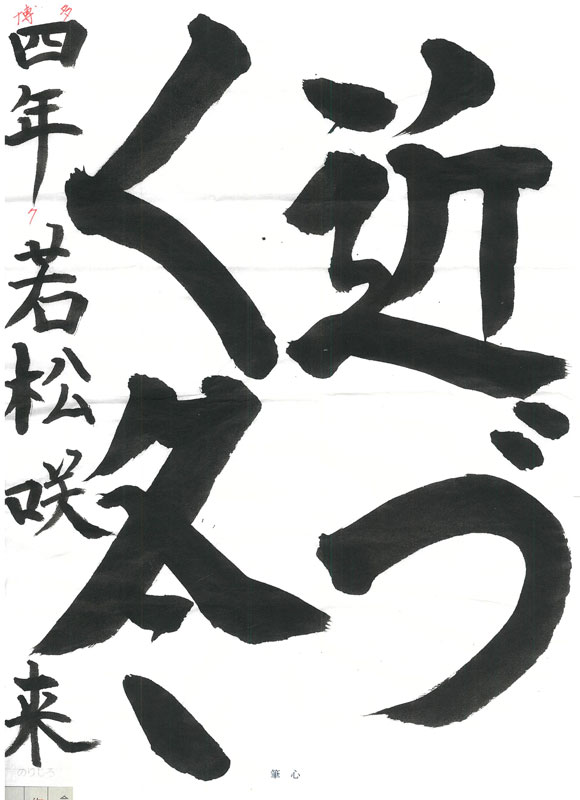 近づ
く冬
四年 若松咲来
博多
ク
筆心
のりしろ